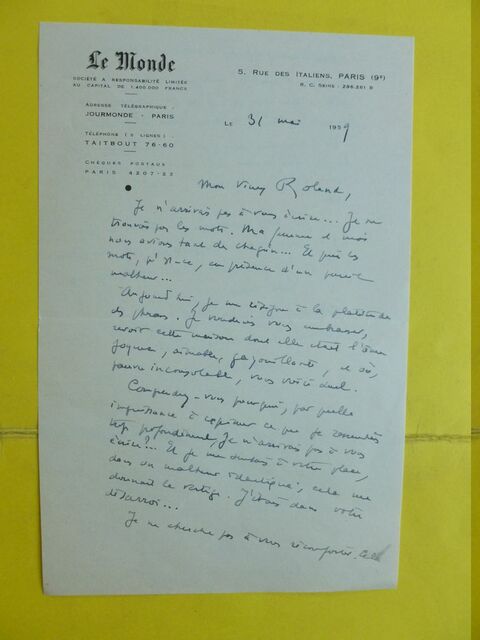 Le Monde
SOCIÉTÉ A RESPONSABILITÉ LIMITÉE
AU CAPITAL DE 1.400.000 FRANCS
5, RUE DES ITALIENS, PARIS (9e)
R. C. SEINE : 256.261 B
ADRESSE TÉLÉGRAPHIQUE :
JOURMONDE - PARIS
LE 31 mai 1959
TÉLÉPHONE (5 LIGNES) :
TAITBOUT 76-60
CHÈQUES POSTAUX :
PARIS 4207-23
Mon vieux Roland,
Je n'arrivais pas à vous écrire... Je ne
trouvais pas les mots. Ma femme et moi
nous avions tant de chagin... Et puis les
mots, qu'est-ce, en présence d'un pareil
malheur...
Aujourd'hui, je me résigne à la platitude
des phrases. Je voudrais vous embrasser,
revoir cette maison dont elle était l'âme
joyeuse, aimable, gazouillante, et où,
pauvre inconsolable, vous voici seul.
Comprenez-vous pourquoi, par quelle
impuissance à exprimer ce que je ressentais
trop profondément, je n'arrivais pas à vous
écrire?.. Et je me mettais à votre place,
dans un malheur identique; cela me
donnait le vertige. J'étais dans votre
désarroi...
Je ne cherche pas à vous réconforter.